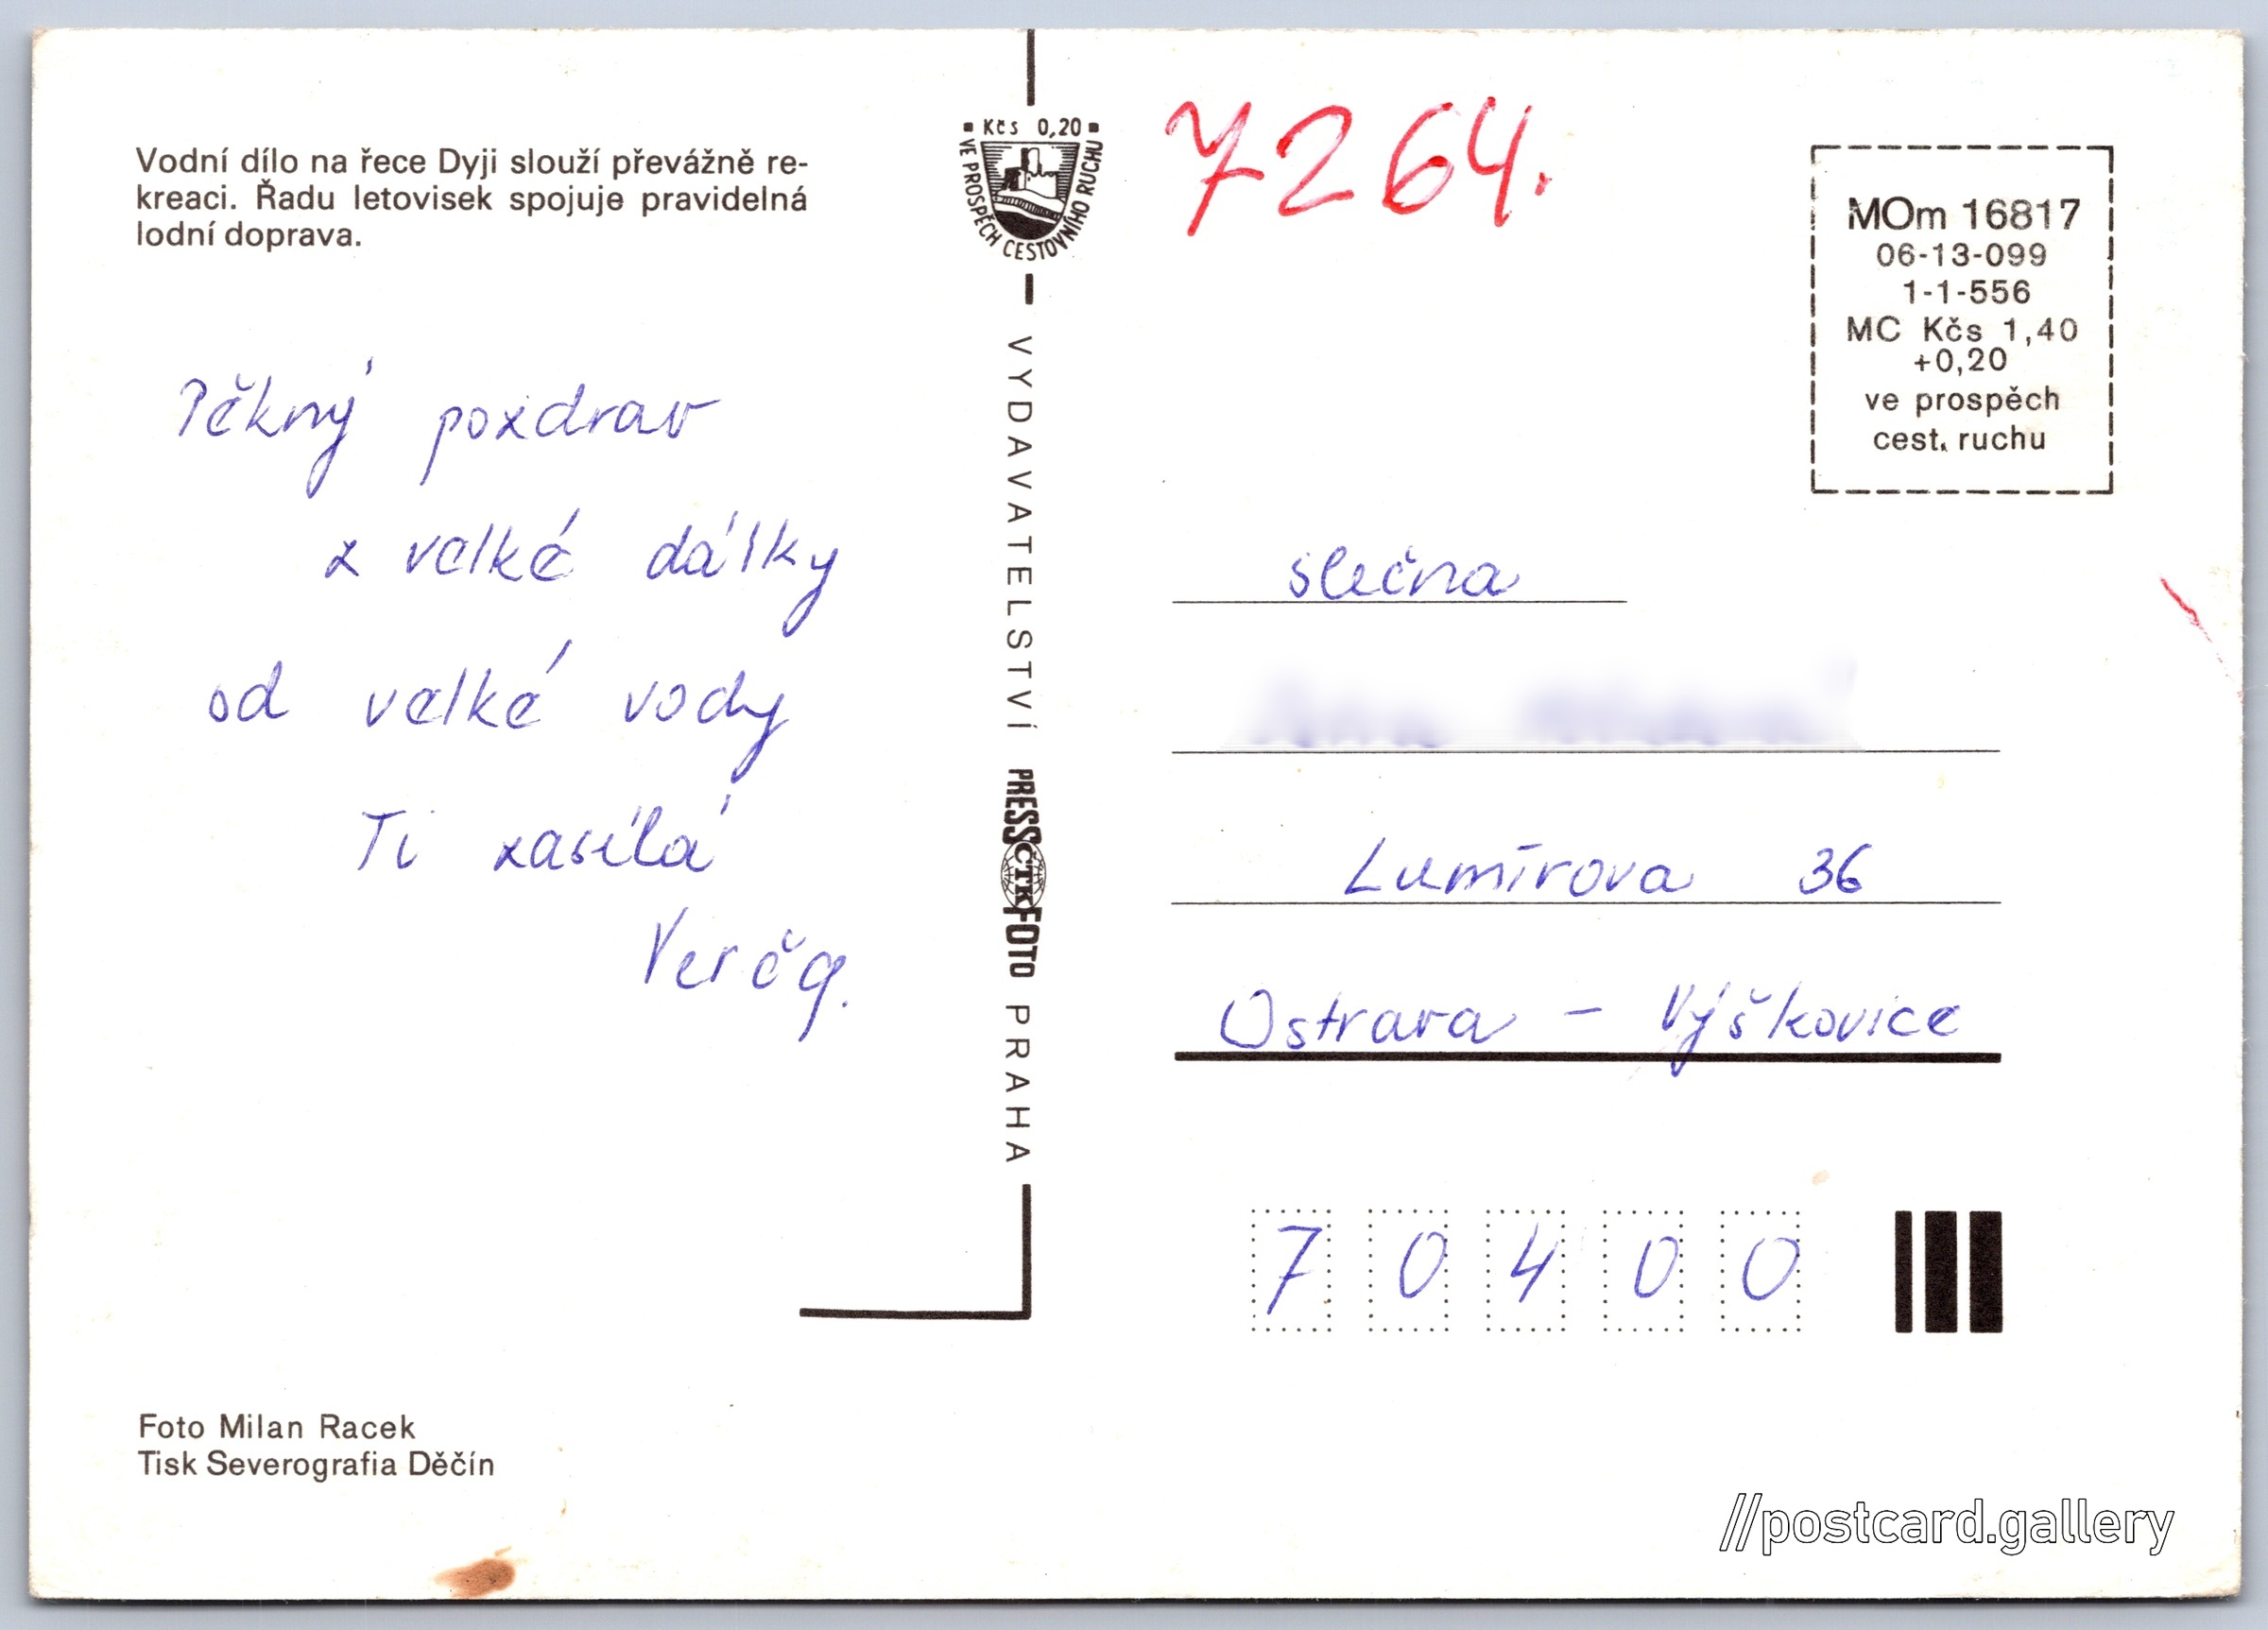 Vodní dílo na řece Dyji slouží převážně re-
kreaci. Řadu letovisek spojuje pravidelná
lodní doprava.
Pěkný pozdrav
z velké dálky
od velké vody
Ti zasílá
Verča.
Foto Milan Racek
Tisk Severografia Děčín
Kčs 0,20
VE PROSPĚCH CESTOVNÍHO RUCHU
VYDAVATELSTVÍ PRESSFOTO PRAHA
ČTK
7264.
MOm 16817
06-13-099
1-1-556
MC Kčs 1,40
+0,20
ve prospěch
cest. ruchu
slečna
Lumírova 36
Ostrava - Výškovice
70400
//postcard.gallery